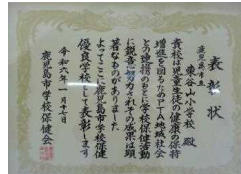 表彰状
鹿児島市立
東谷山小学校 殿
貴校は児童生徒の健康の保持
増進を図るためPTA地域社会
との連携のもとに学校保健活動
に鋭意努力されその成果は顕
著なものがありました
よってここに鹿児島市学校保健
優良学校として表彰します
令和六年一月十七日
鹿児島市学校保健会